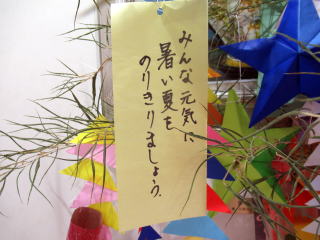 みんな元気に
暑い夏を
のりきりましょう.